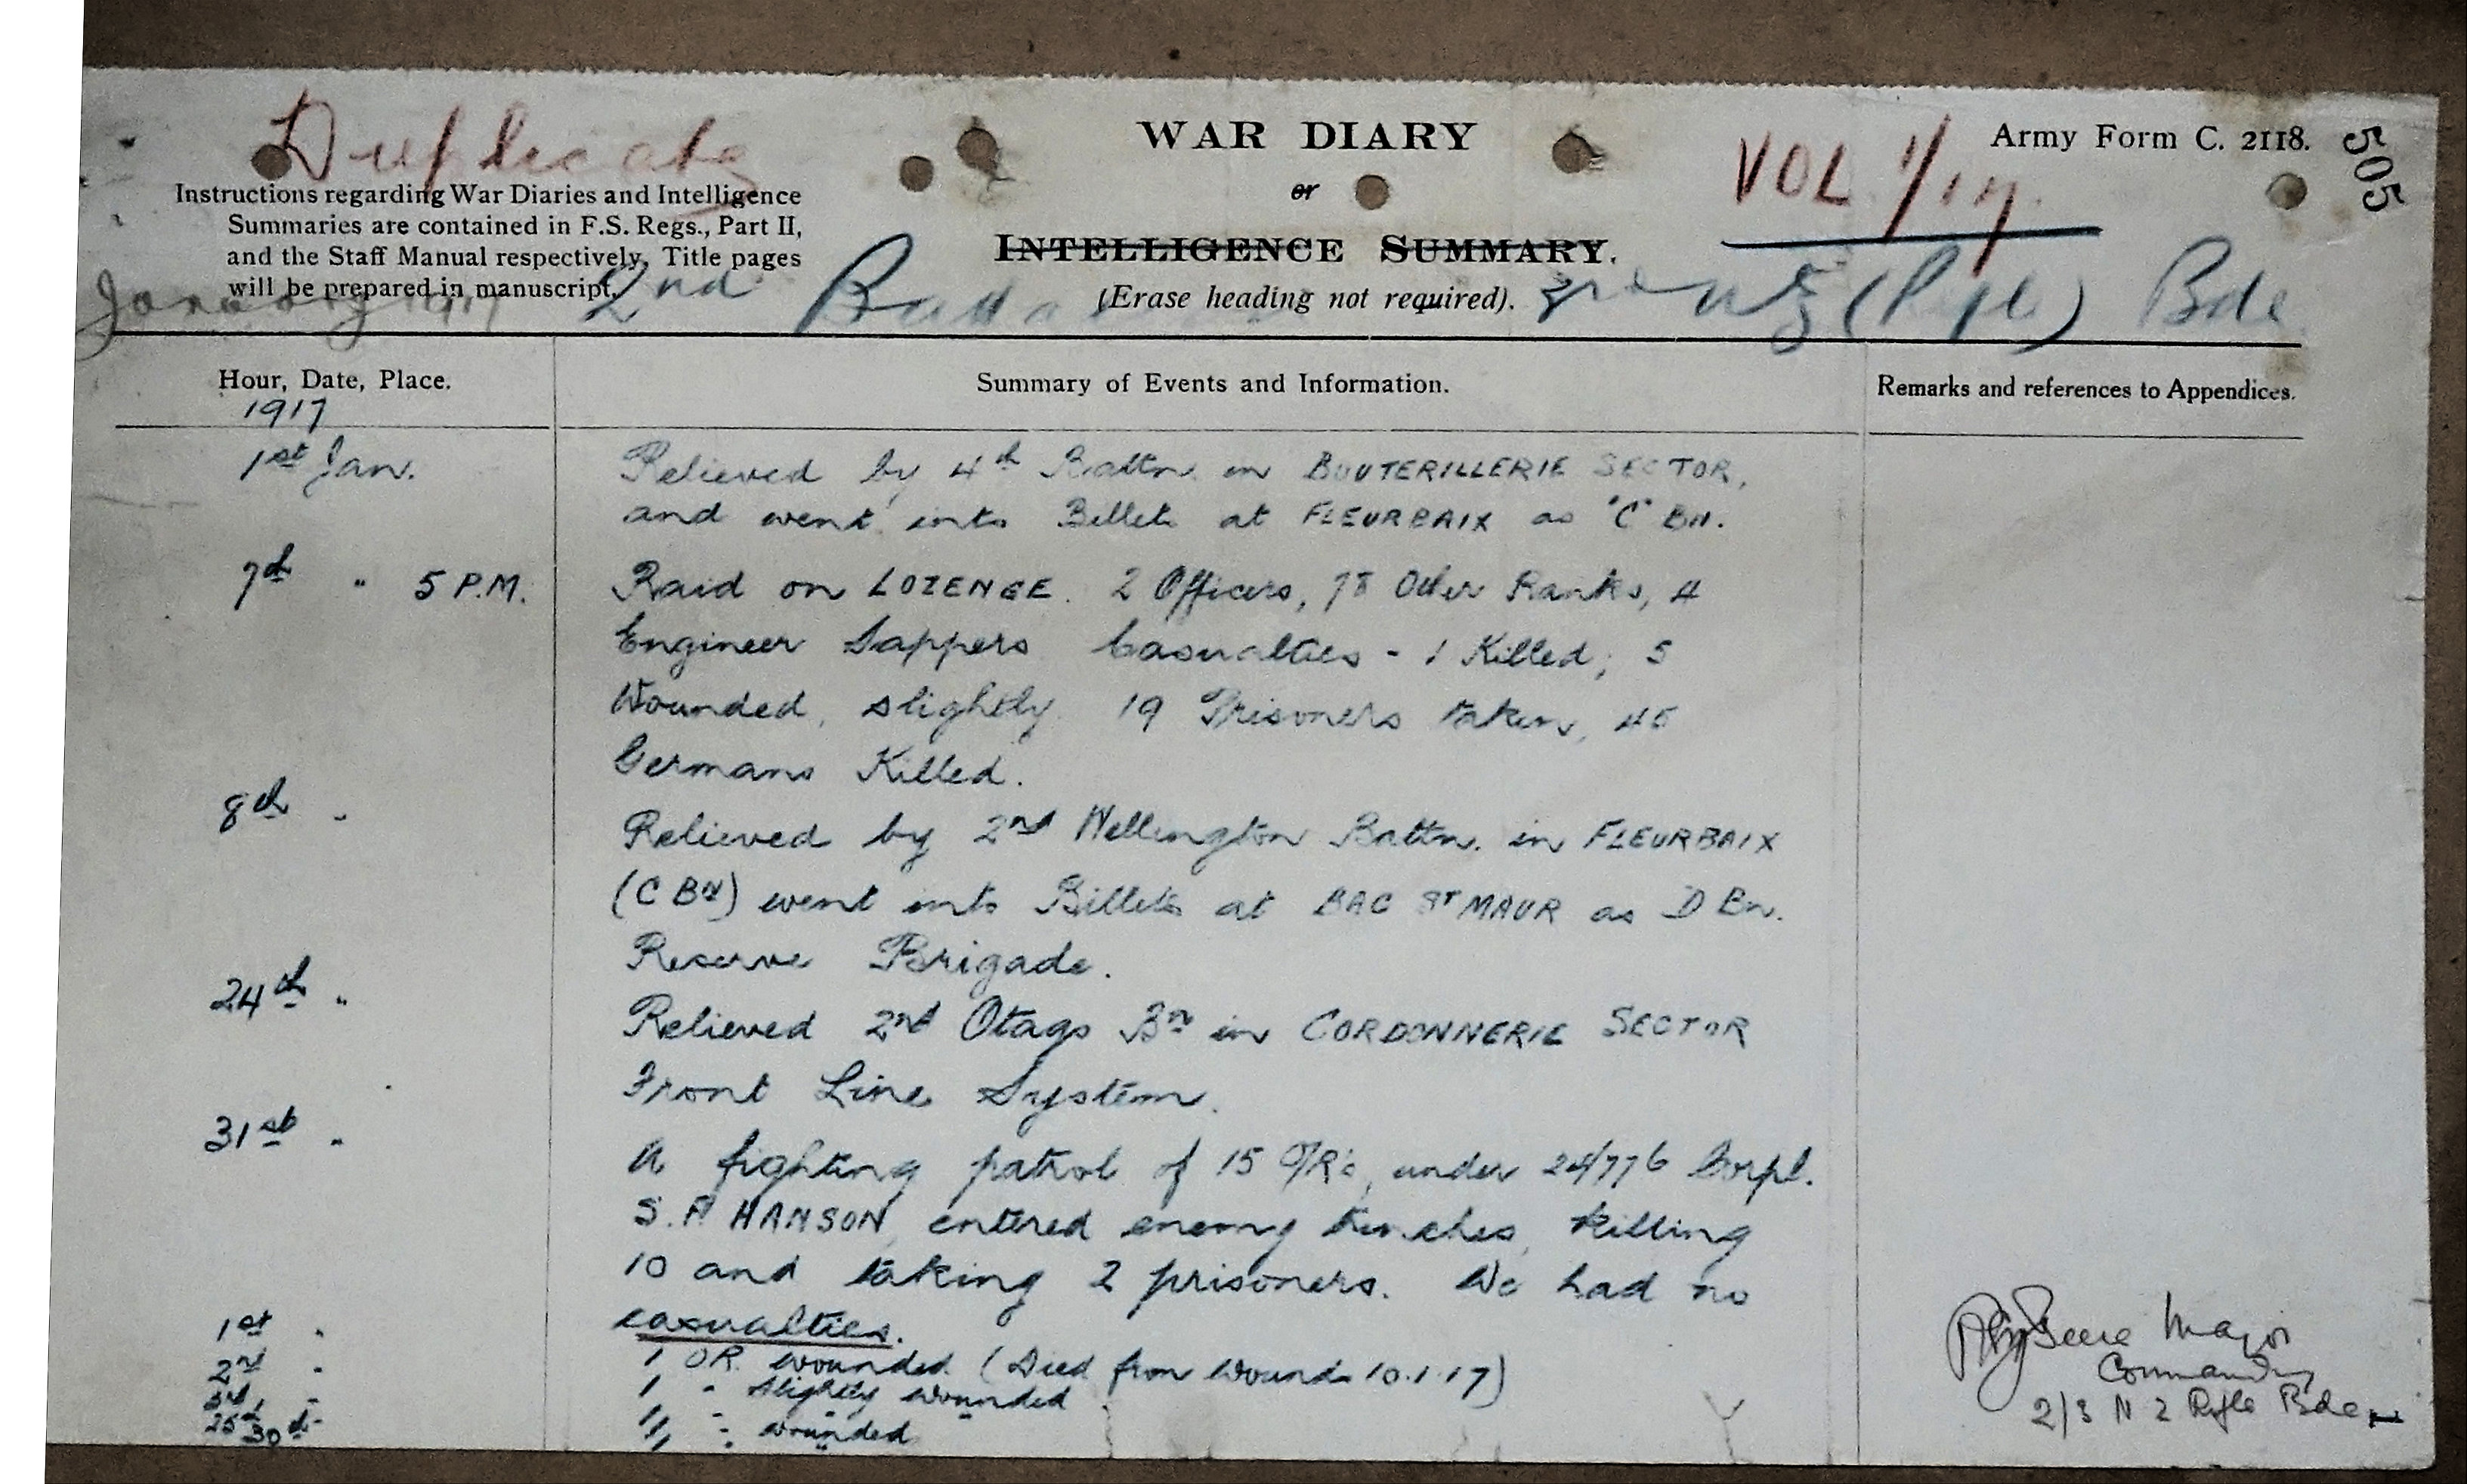 Duplicate
WAR DIARY
or
INTELLIGENCE SUMMARY.
(Erase heading not required).
VOL 1/17
Army Form C. 2118.
505
Instructions regarding War Diaries and Intelligence
Summaries are contained in F.S. Regs., Part II,
and the Staff Manual respectively. Title pages
will be prepared in manuscript.
January 1917 2nd (Rfl) Bde
Hour, Date, Place.
Summary of Events and Information.
Remarks and references to Appendices.
1917
1st Jan. Relieved by 4th Battn. in BOUTERILLERIE SECTOR,
and went into Billets at FLEURBAIX as "C" BN.
7th " 5 P.M. Raid on LOZENGE. 2 Officers, 78 Other Ranks, 4
Engineer Sappers Casualties - 1 Killed; 5
Wounded, slightly 19 Prisoners taken, 45
Germans Killed.
8th " Relieved by 2nd Wellington Battn. in FLEURBAIX
(C BN) went into Billets at BAC ST MAUR as D Bn.
Reserve Brigade.
24th " Relieved 2nd Otago Bn in CORDONNERIE SECTOR
Front Line System.
31st " A fighting patrol of 15 O/R's, under 24/776 Corpl.
S. A HANSON, entered enemy trenches, killing
10 and taking 2 prisoners. We had no
casualties.
1st " 1 OR. wounded (Died from Wounds 10.1.17)
2nd " 1 " slightly wounded
3rd "
25th 30th " " wounded
Major
Commanding
2/3 N Z Rifle Bde